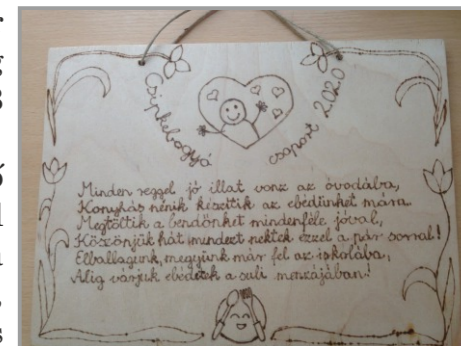 Csipkebogyó
csoport 2020
Minden reggel jó illat vonz az óvodába,
Konyhás nénik készítik az ebédünket mára
Megtöltik a bendőnket mindenféle jóval,
Köszönjük hát mindezt nektek ezzel a pár sorral!
Elballagunk, megyünk már fel az iskolába,
Alig várjuk ebédetek a suli menzájában!